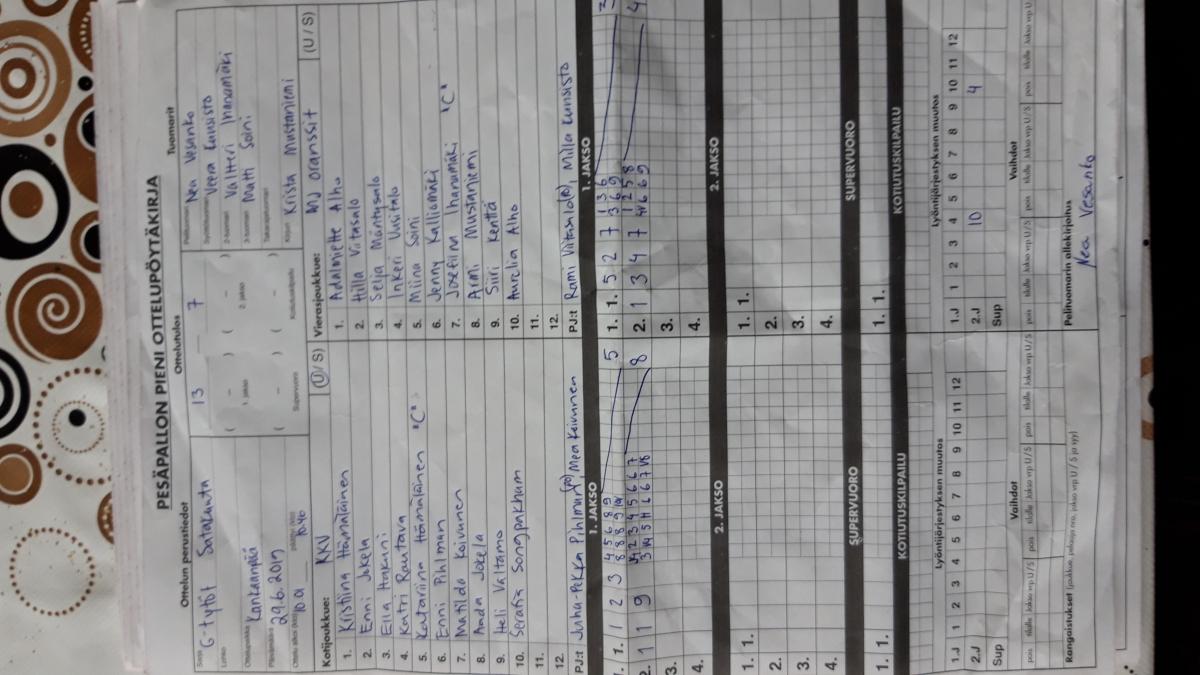 PESÄPALLON PIENI OTTELUPÖYTÄKIRJA
Ottelun perustiedot
Ottelutulos
Tuomarit
Sarja G-tytöt Satakunta
Lohko
Ottelupaikka Kankaanpää
Päivämäärä 29.6.2019
Ottelu alkoi (klo) 10.01 päättyi (klo) 10.46
13 – 7
( – ) ( – )
1. jakso 2. jakso
( – ) ( – )
Supervuoro Kotiutuskilpailu
Pelituomari Nea Vesanko
Syöttötuomari Veera Kuusisto
2-tuomari Valtteri Ihanamäki
3-tuomari Matti Soini
Takarajatuomari
Kirjuri Krista Mustaniemi
Kotijoukkue: KKV (U/S)
1. Kristiina Hämäläinen
2. Enni Jokela
3. Ella Hakuni
4. Katri Rautava
5. Katariina Hämäläinen "C"
6. Enni Pihlman
7. Matilda Koivunen
8. Aada Jokela
9. Heli Valtamo
10. Serafia Songpakham
11.
12.
PJ:t Juha-Pekka Pihlman, Mea Koivunen
Vierasjoukkue: MJ oranssit (U/S)
1. Adalmiette Alho
2. Hilla Viitasalo
3. Selja Mäntysalo
4. Inkeri Uusitalo
5. Miina Soini
6. Jenny Kalliomäki
7. Josefiina Ihanamäki "C"
8. Armi Mustaniemi
9. Siiri Kenttä
10. Aurelia Alho
11.
12.
PJ:t Rami Viitasalo, Milla Kuusisto
1. JAKSO
1. JAKSO
1. 1. 1 2 3 4 5 6 8 9
5
2. 1 1 9
8
3.
4.
1. 1. 5 2 7 1 3 6
3 6 9
2. 1 3 4 7 1 2 5 8
6 6 9
4
3.
4.
2. JAKSO
2. JAKSO
1. 1.
2.
3.
4.
1. 1.
2.
3.
4.
SUPERVUORO
SUPERVUORO
1. 1.
1. 1.
KOTIUTUSKILPAILU
KOTIUTUSKILPAILU
Lyöntijärjestyksen muutos
1.J 1 2 3 4 5 6 7 8 9 10 11 12
2.J
Sup
Lyöntijärjestyksen muutos
1.J 1 2 3 4 5 6 7 8 9 10 11 12
2.J 10 4
Sup
Vaihdot
pois tilalle Jakso vrp U/S pois tilalle Jakso vrp U/S pois tilalle Jakso vrp U/S
Vaihdot
pois tilalle Jakso vrp U/S pois tilalle Jakso vrp U/S pois tilalle Jakso vrp U
Rangaistukset (joukkue, pelaaja nro, jakso vrp U / S ja syy)
Pelituomarin allekirjoitus
Nea Vesanko